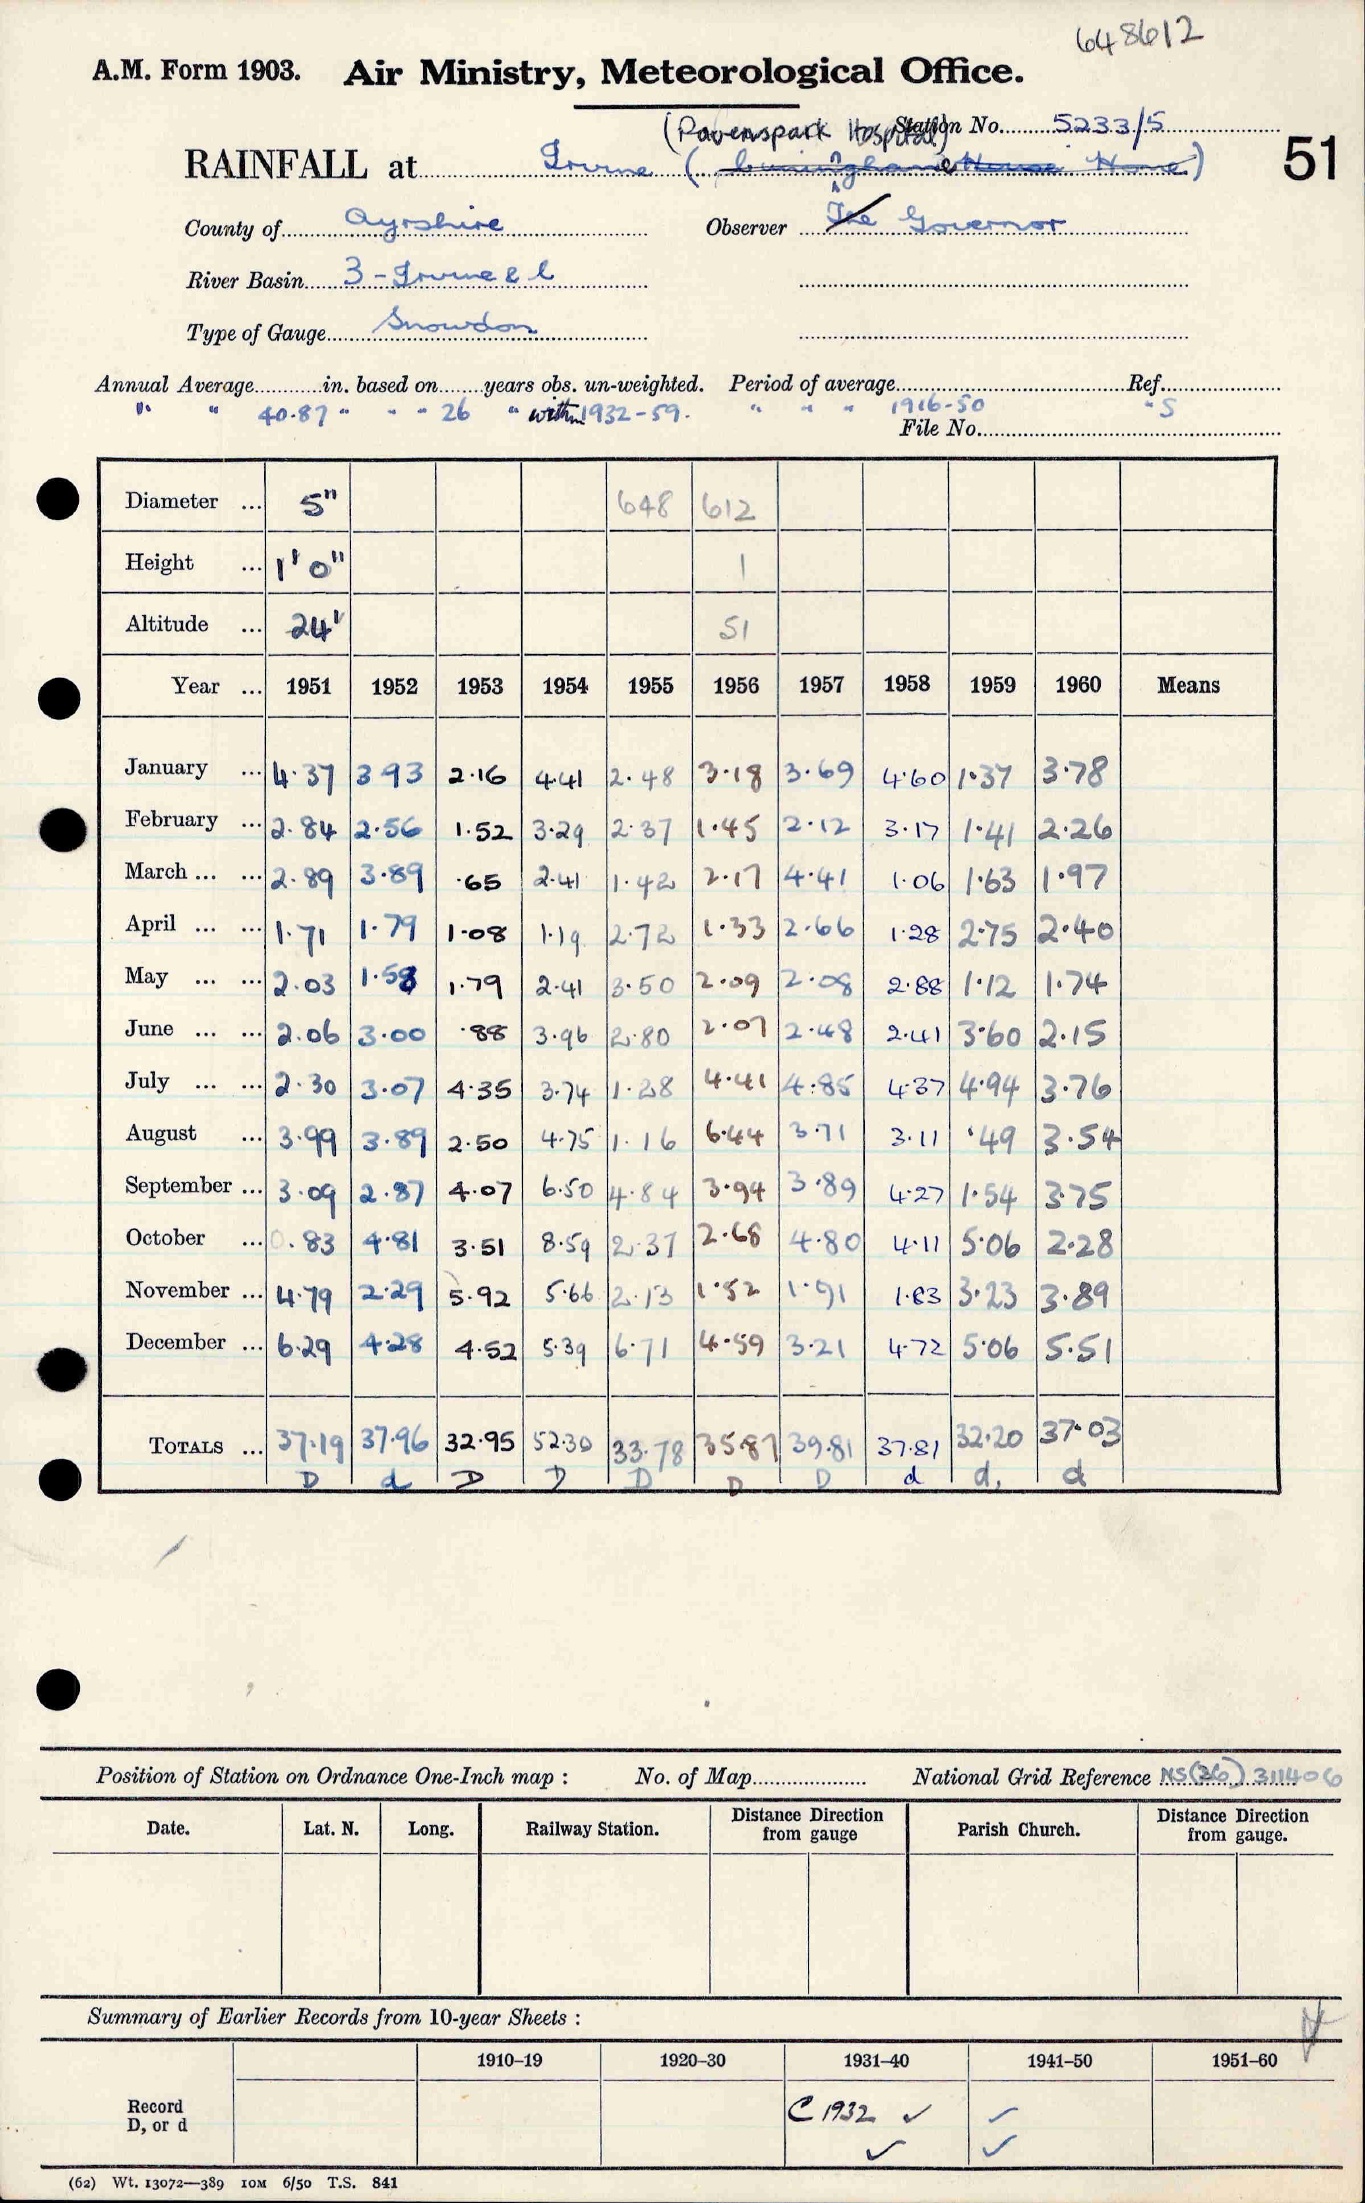 648612
A.M. Form 1903. Air Ministry, Meteorological Office.
(Ravenspark Hospital) Station No. 5233/5
RAINFALL at Irvine ( House Home) 51
County of Ayrshire Observer The Governor
River Basin 3 - Irvine & c
Type of Gauge Snowdon
Annual Average in. based on years obs. un-weighted. Period of average Ref.
" " 40.87 " " " 26 " within 1932-59. " " " 1916-50 " S
File No.
Diameter ... 5" 648 612
Height ... 1' 0" 1
Altitude ... 24' 51
Year ... 1951 1952 1953 1954 1955 1956 1957 1958 1959 1960 Means
January ... 4.37 3.93 2.16 4.41 2.48 3.18 3.69 4.60 1.37 3.78
February ... 2.84 2.56 1.52 3.29 2.37 1.45 2.12 3.17 1.41 2.26
March ... ... 2.89 3.89 .65 2.41 1.42 2.17 4.41 1.06 1.63 1.97
April ... ... 1.71 1.79 1.08 1.19 2.72 1.33 2.66 1.28 2.75 2.40
May ... ... 2.03 1.58 1.79 2.41 3.50 2.09 2.08 2.88 1.12 1.74
June ... ... 2.06 3.00 .88 3.96 2.80 2.07 2.48 2.41 3.60 2.15
July ... ... 2.30 3.07 4.35 3.74 1.28 4.41 4.85 4.37 4.94 3.76
August ... 3.99 3.89 2.50 4.75 1.16 6.44 3.71 3.11 .49 3.54
September ... 3.09 2.87 4.07 6.50 4.84 3.94 3.89 4.27 1.54 3.75
October ... 0.83 4.81 3.51 8.59 2.37 2.68 4.80 4.11 5.06 2.28
November ... 4.79 2.29 5.92 5.66 2.13 1.52 1.91 1.83 3.23 3.89
December ... 6.29 4.28 4.52 5.39 6.71 4.59 3.21 4.72 5.06 5.51
TOTALS ... 37.19 37.96 32.95 52.30 33.78 35.87 39.81 37.81 32.20 37.03
D d D D D D D d d. d
Position of Station on Ordnance One-Inch map : No. of Map National Grid Reference NS(26) 311406
Date. Lat. N. Long. Railway Station. Distance from gauge Direction Parish Church. Distance from gauge. Direction
Summary of Earlier Records from 10-year Sheets :
1910-19 1920-30 1931-40 1941-50 1951-60
Record D, or d C 1932 ✓ ✓
✓ ✓
(62) Wt. 13072—389 10M 6/50 T.S. 841